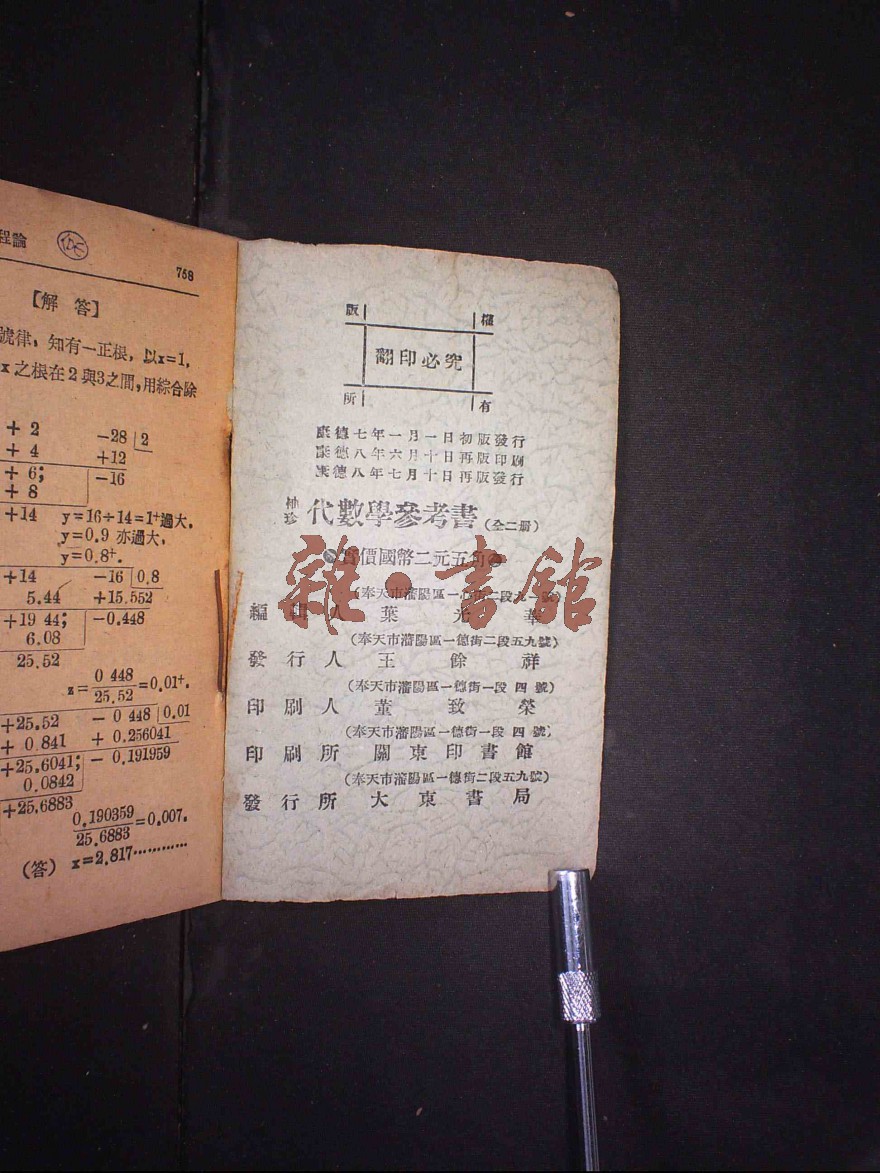 程論
758
【解 答】
號律，知有一正根，以x=1，
x 之根在2與3之間，用綜合除
+ 2 -28 2
+ 4 +12
+ 6; -16
+ 8
+14 y=16÷14=1⁺過大，
y=0.9 亦過大，
y=0.8⁺.
+14 -16 0.8
5.44 +15.552
+19 44; -0.448
6.08
25.52
z= 0 448 / 25.52 =0.01⁺.
+25.52 - 0 448 0.01
+ 0.841 + 0.256041
+25.6041; - 0.191959
0.0842
+25.6883
0.190359 / 25.6883 =0.007.
(答) x=2.817…………
版 權
翻印必究
所 有
康德七年一月一日初版發行
康德八年六月十日再版印刷
康德八年七月十日再版發行
袖珍 代數學參考書 (全二册)
實價國幣二元五角
雜·書館
(奉天市瀋陽區一心街二段九一號)
編 輯 人 葉 光 華
(奉天市瀋陽區一德街二段五九號)
發 行 人 王 餘 祥
(奉天市瀋陽區一德街一段 四 號)
印 刷 人 董 致 榮
(奉天市瀋陽區一德街一段 四 號)
印 刷 所 關 東 印 書 館
(奉天市瀋陽區一德街二段五九號)
發 行 所 大 東 書 局